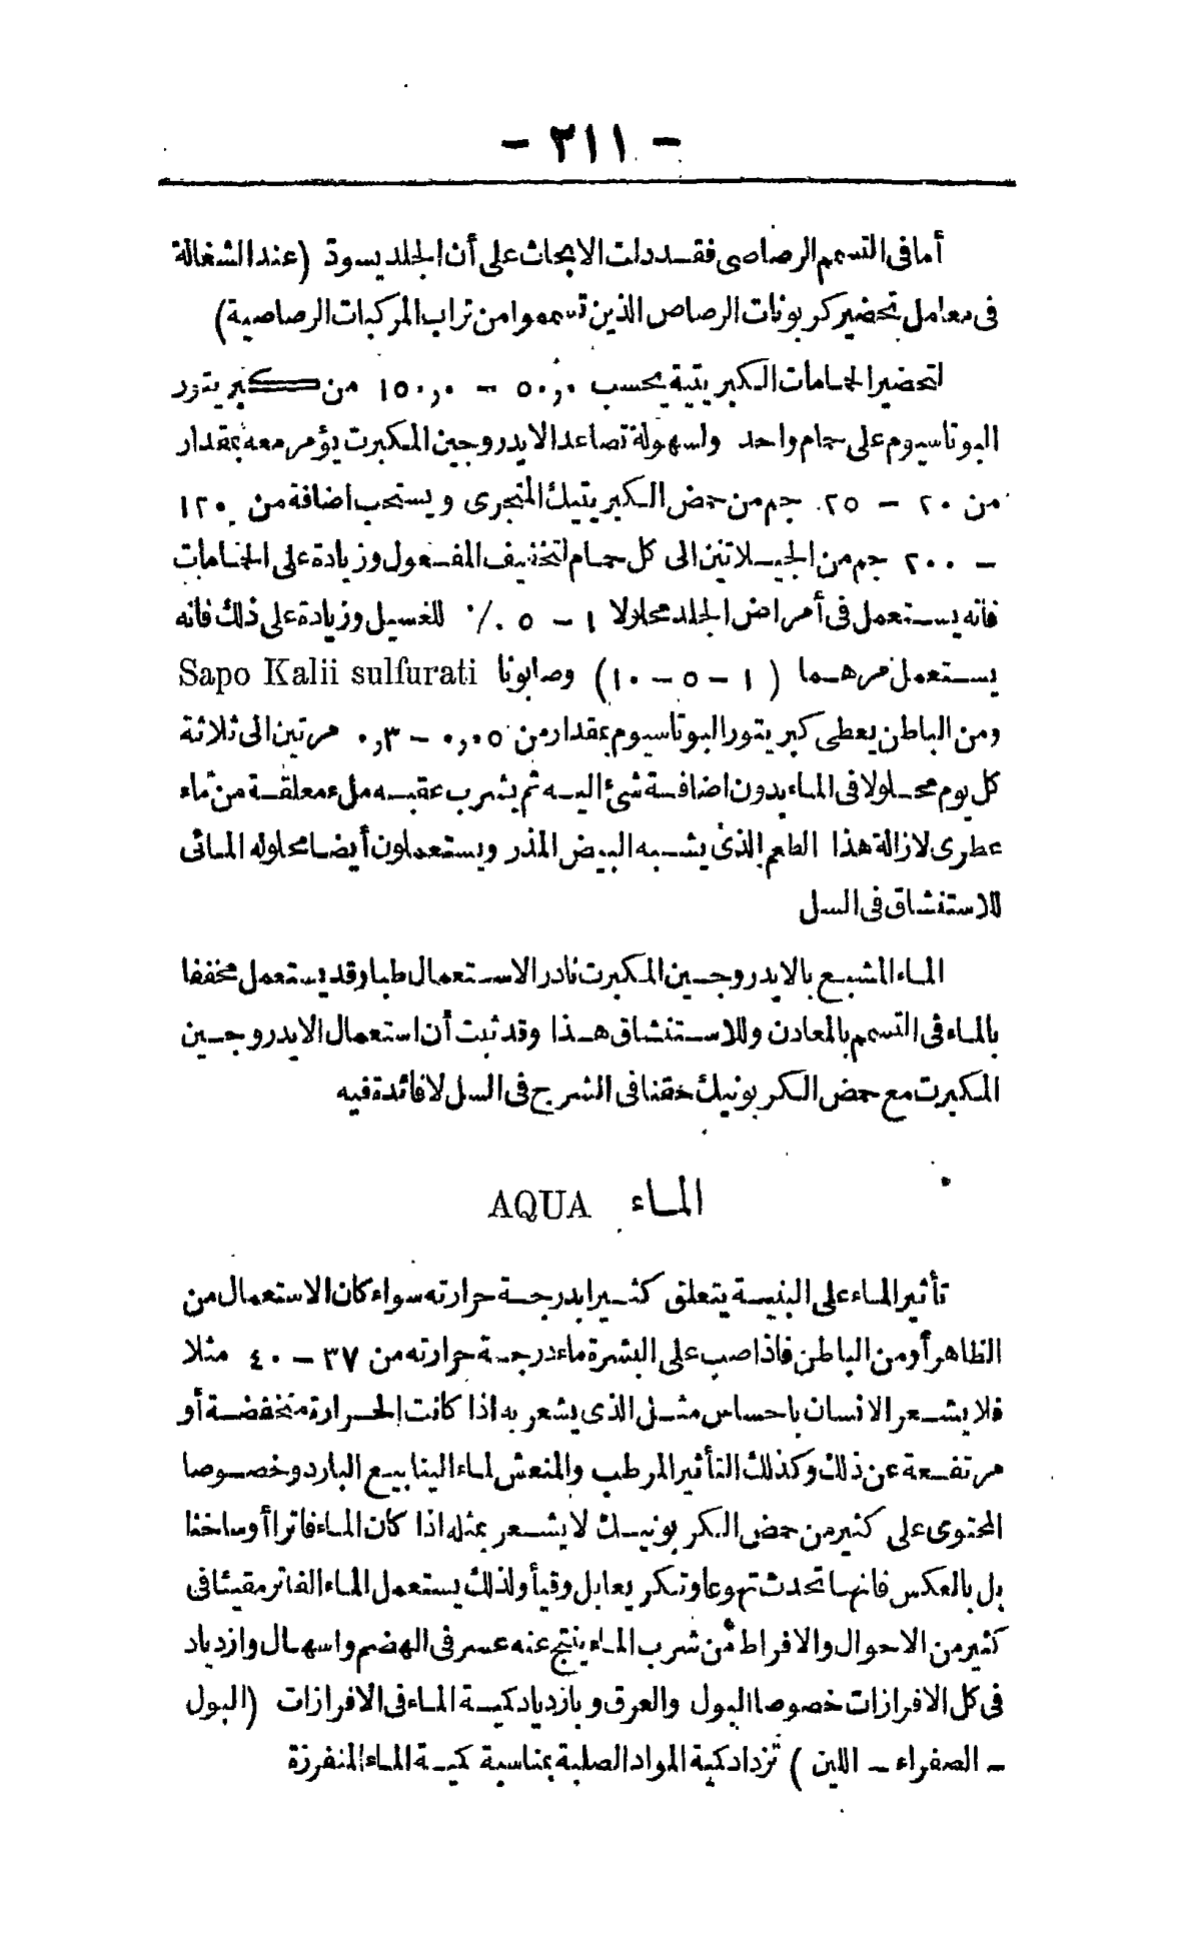 - ٣١١ -
أما فى التسمم الرصاصى فقد دلت الابحاث على أن الجلد يسود (عند الشغالة
فى معامل تحضير كربونات الرصاص الذين تسمموا من تراب المركبات الرصاصية)
لتحضير الحمامات الكبريتية بحسب ٥٠,٠ - ١٥٠,٠ من كبريتور
البوتاسيوم على حمام واحد ولسهولة تصاعد الايدروجين المكبرت يؤمر معه بمقدار
من ٢٠ - ٢٥ جم من حمض الكبريتيك المتجرى ويستحب اضافة من ١٢٠
- ٢٠٠ جم من الجيلاتين الى كل حمام لتخفيف المفعول وزيادة على الحمامات
فانه يستعمل فى أمراض الجلد محلولا ١ - ٥ ٪ للغسيل وزيادة على ذلك فانه
يستعمل مرهما (١ - ٥ - ١٠) وصابونا Sapo Kalii sulfurati
ومن الباطن يعطى كبريتور البوتاسيوم بمقدار من ٠,٠٥ - ٠,٣ مرتين الى ثلاثة
كل يوم محلولا فى الماء بدون اضافة شئ اليه ثم يشرب عقبه ملء معلقة من ماء
عطرى لازالة هذا الطعم الذى يشبه البيض المذر ويستعملون أيضا محلوله المائى
للاستنشاق فى السل
الماء المشبع بالايدروجين المكبرت نادر الاستعمال طبا وقد يستعمل مخففا
بالماء فى التسمم بالمعادن وللاستنشاق هذا وقد ثبت أن استعمال الايدروجين
المكبرت مع حمض الكربونيك حقنا فى الشرج فى السل لا فائدة فيه
الماء AQUA
تأثير الماء على البنية يتعلق كثيرا بدرجة حرارته سواء كان الاستعمال من
الظاهر أو من الباطن فاذا صب على البشرة ماء درجة حرارته من ٣٧ - ٤٠ مثلا
فلا يشعر الانسان باحساس مثل الذى يشعر به اذا كانت الحرارة منخفضة أو
مرتفعة عن ذلك وكذلك التأثير المرطب والمنعش لماء الينابيع البارد وخصوصا
المحتوى على كثير من حمض الكربونيك لا يشعر بمثله اذا كان الماء فاترا أو ساخنا
بل بالعكس فانها تحدث تهوعا وتكريعا بل وقيأ ولذلك يستعمل الماء الفاتر مقيئا فى
كثير من الاحوال والافراط من شرب الماء ينتج عنه عسر فى الهضم واسهال وازدياد
فى كل الافرازات خصوصا البول والعرق وبازدياد كمية الماء فى الافرازات (البول
- الصفراء - اللبن) تزداد كمية المواد الصلبة بمناسبة كمية الماء المنفرزة